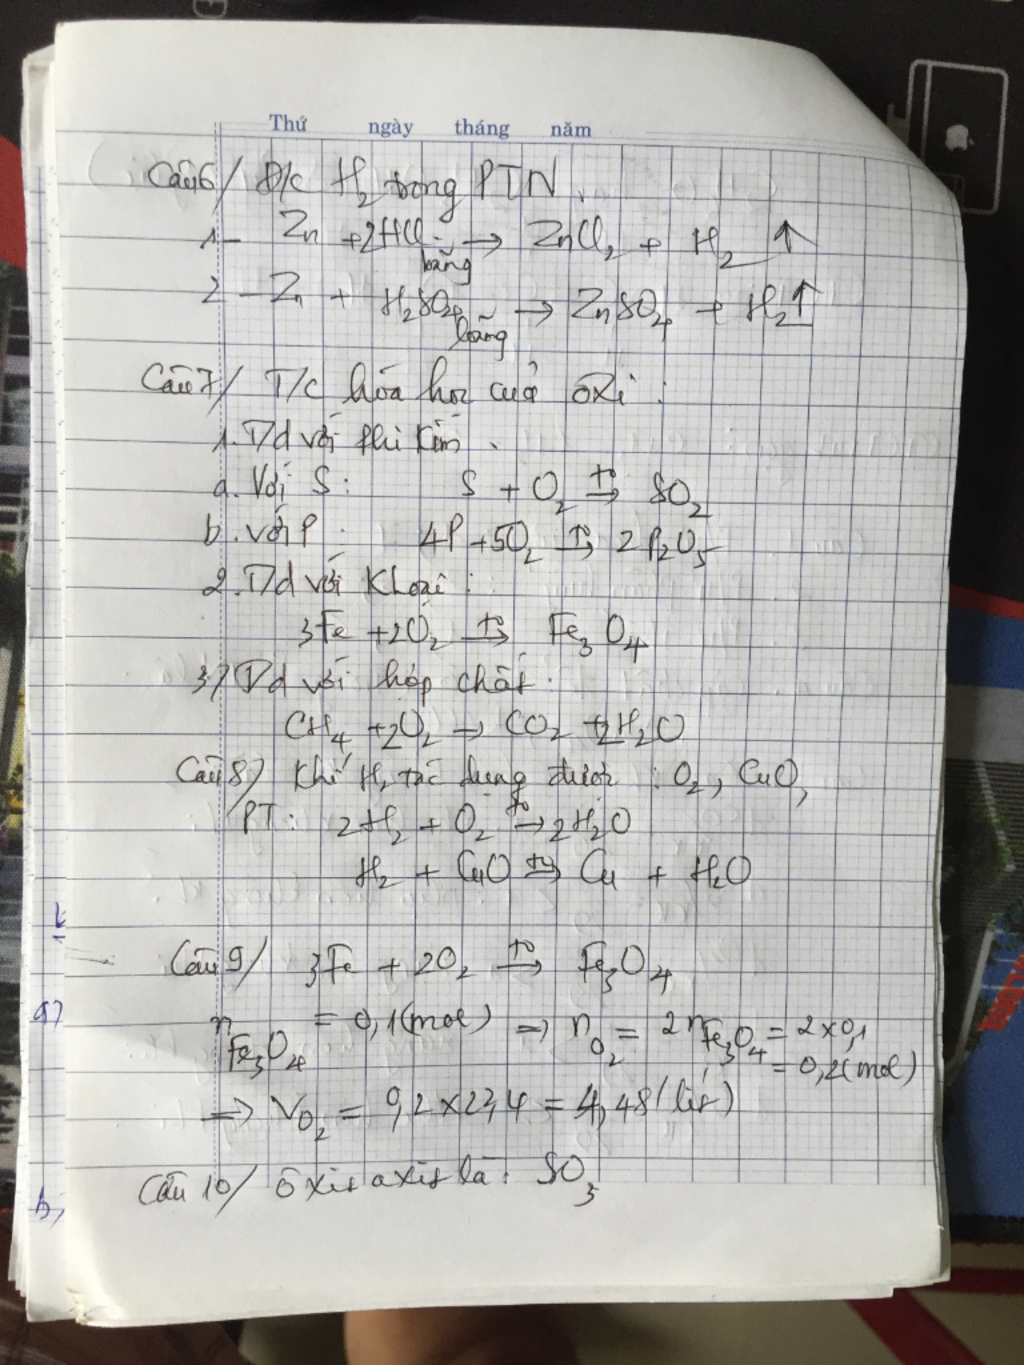 Thứ ngày tháng năm
Câu 6/ Đ/c H₂ trong PTN.
1 - Zn + 2HCl loãng → ZnCl₂ + H₂ ↑
2 - Zn + H₂SO₄ loãng → ZnSO₄ + H₂↑
Câu 7/ T/c hóa học của ôxi :
1. T/d với phi kim.
a. Với S: S + O₂ t° → SO₂
b. với P: 4P + 5O₂ t° → 2P₂O₅
2. T/d với kloại :
3Fe + 2O₂ t° → Fe₃O₄
3/ T/d với hợp chất.
CH₄ + 2O₂ → CO₂ + 2H₂O
Câu 8/ Khí H₂ tác dụng được : O₂, CuO,
PT: 2H₂ + O₂ t° → 2H₂O
H₂ + CuO t° → Cu + H₂O
Câu 9/ 3Fe + 2O₂ t° → Fe₃O₄
a)
n Fe₃O₄ = 0,1(mol) ⇒ n O₂ = 2n Fe₃O₄ = 2 x 0,1
= 0,2(mol)
⇒ V O₂ = 0,2 x 22,4 = 4,48 (lít)
Câu 10/ ôxit axit là : SO₃
b)